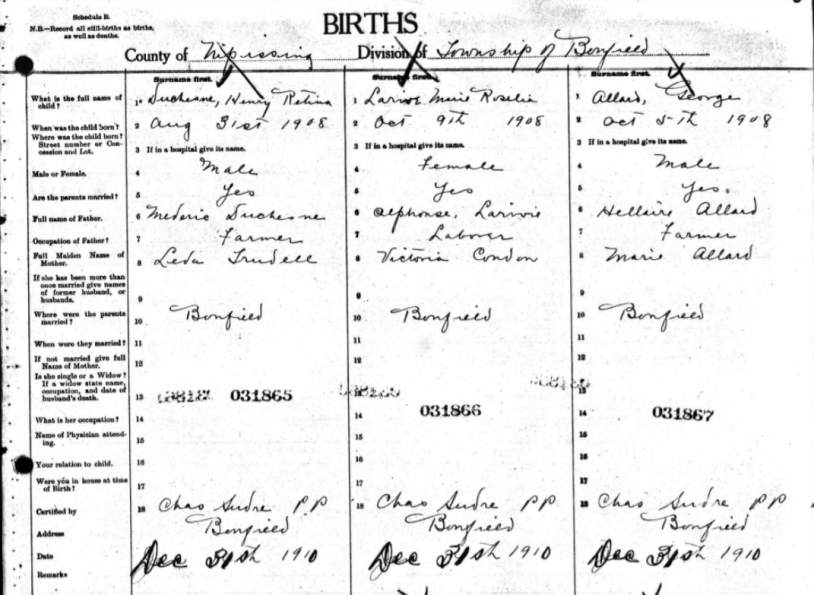 Schedule B.
N.B.—Record all still-births as births, as well as deaths.
BIRTHS
County of Nipissing Division of Township of Bonfield
Surname first. Surname first. Surname first.
What is the full name of child? 1 Duchesne, Henry 1 Larivie Marie Roselia 1 Allard, George
When was the child born? 2 Aug 31st 1908 2 Oct 9th 1908 2 Oct 5th 1908
Where was the child born? Street number or Concession and Lot. 3 If in a hospital give its name. 3 If in a hospital give its name. 3 If in a hospital give its name.
Male or Female. 4 Male 4 Female 4 Male
Are the parents married? 5 Yes 5 Yes 5 Yes.
Full name of Father. 6 Mederic Duchesne 6 Alphonse, Larivie 6 Hellaire Allard
Occupation of Father? 7 Farmer 7 Laborer 7 Farmer
Full Maiden Name of Mother. 8 Leda Trudell 8 Victoria Condon 8 Marie Allard
If she has been more than once married give names of former husband, or husbands. 9 9 9
Where were the parents married? 10 Bonfield 10 Bonfield 10 Bonfield
When were they married? 11 11 11
If not married give full Name of Mother. 12 12 12
Is she single or a Widow? If a widow state name, occupation, and date of husband's death. 13 031865 13 031866 13 031867
What is her occupation? 14 14 14
Name of Physician attending. 15 15 15
Your relation to child. 16 16 16
Were you in house at time of Birth? 17 17 17
Certified by 18 Chas Sudre P.P 18 Chas Sudre PP 18 Chas Sudre PP
Address Bonfield Bonfield Bonfield
Date Dec 31st 1910 Dec 31st 1910 Dec 31st 1910
Remarks